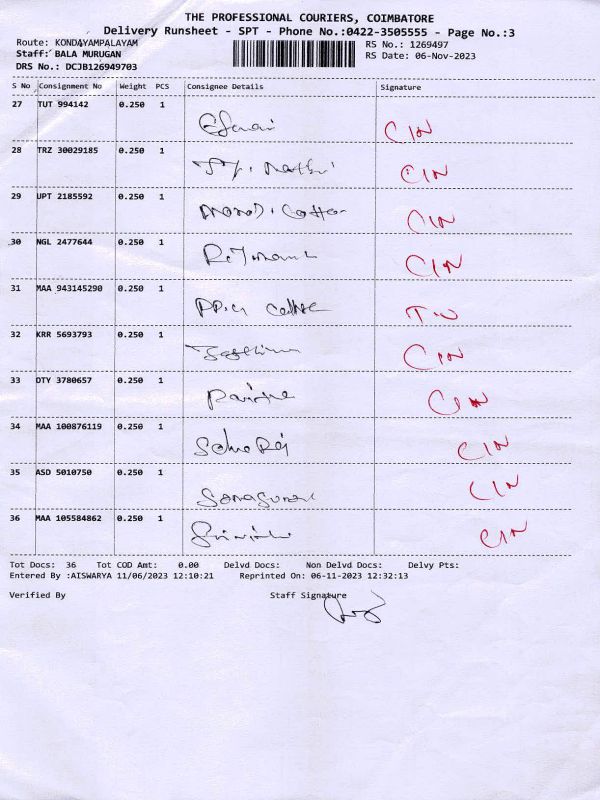 THE PROFESSIONAL COURIERS, COIMBATORE
Delivery Runsheet - SPT - Phone No.:0422-3505555 - Page No.:3
Route: KONDAYAMPALAYAM RS No.: 1269497
Staff: BALA MURUGAN RS Date: 06-Nov-2023
DRS No.: DCJB126949703
S No Consignment No Weight PCS Consignee Details Signature
27 TUT 994142 0.250 1
CIN
28 TRZ 30029185 0.250 1
CIN
29 UPT 2185592 0.250 1
CIN
30 NGL 2477644 0.250 1
CIN
31 MAA 943145290 0.250 1
32 KRR 5693793 0.250 1
CIN
33 DTY 3780657 0.250 1
CIN
34 MAA 100876119 0.250 1
CIN
35 ASD 5010750 0.250 1
CIN
36 MAA 105584862 0.250 1
CIN
Tot Docs: 36 Tot COD Amt: 0.00 Delvd Docs: Non Delvd Docs: Delvy Pts:
Entered By :AISWARYA 11/06/2023 12:10:21 Reprinted On: 06-11-2023 12:32:13
Verified By Staff Signature